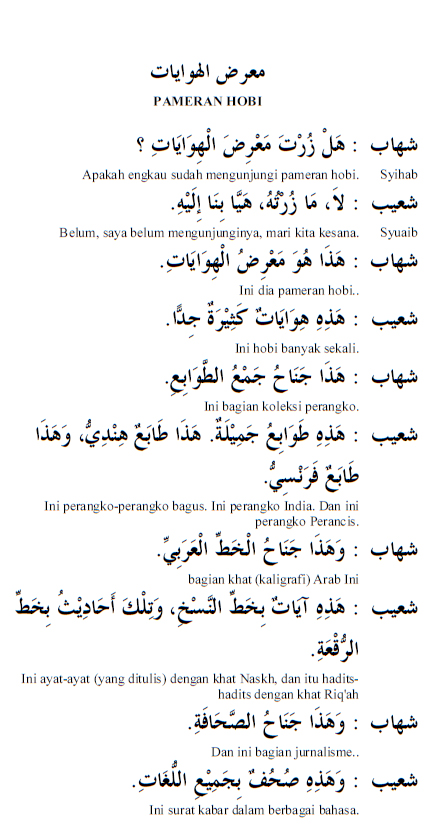 معرض الهوايات
PAMERAN HOBI
شهاب : هَلْ زُرْتَ مَعْرِضَ الْهِوَايَاتِ ؟
Apakah engkau sudah mengunjungi pameran hobi. Syihab
شعيب : لاَ، مَا زُرْتُهُ، هَيَّا بِنَا إِلَيْهِ.
Belum, saya belum mengunjunginya, mari kita kesana. Syuaib
شهاب : هَذَا هُوَ مَعْرِضُ الْهِوَايَاتِ.
Ini dia pameran hobi..
شعيب : هَذِهِ هِوَايَاتٌ كَثِيْرَةٌ جِدًّا.
Ini hobi banyak sekali.
شهاب : هَذَا جَنَاحُ جَمْعُ الطَّوَابِعِ.
Ini bagian koleksi perangko.
شعيب : هَذِهِ طَوَابِعُ جَمِيْلَةٌ. هَذَا طَابَعٌ هِنْدِيٌّ، وَهَذَا
طَابَعٌ فَرَنْسِيٌّ.
Ini perangko-perangko bagus. Ini perangko India. Dan ini
perangko Perancis.
شهاب : وَهَذَا جَنَاحُ الْخَطِّ الْعَرَبِيِّ.
bagian khat (kaligrafi) Arab Ini
شعيب : هَذِهِ آيَاتٌ بِخَطِّ النَّسْخِ، وَتِلْكَ أَحَادِيْثُ بِخَطِّ
الرُّقْعَةِ.
Ini ayat-ayat (yang ditulis) dengan khat Naskh, dan itu hadits-
hadits dengan khat Riq'ah
شهاب : وَهَذَا جَنَاحُ الصَّحَافَةِ.
Dan ini bagian jurnalisme..
شعيب : وَهَذِهِ صُحُفٌ بِجَمِيْعِ اللُّغَاتِ.
Ini surat kabar dalam berbagai bahasa.